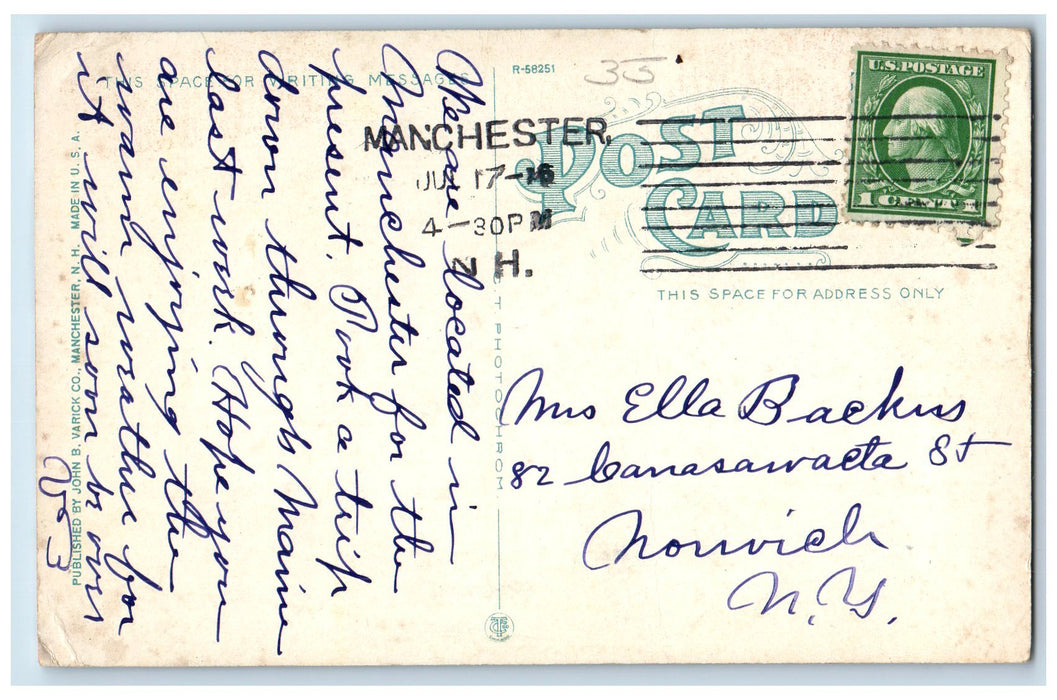 THIS SPACE FOR WRITING MESSAGES
R-58251
35
U.S. POSTAGE
POST CARD
MANCHESTER,
17-16
4-30PM
N.H.
THIS SPACE FOR ADDRESS ONLY
We are located in
Manchester for the
present. Took a trip
down through Maine
last week. Hope you
are enjoying the
warm weather for
it will soon be over
Mrs Ella Backus
82 Canasawacta St
Norwich
N.Y.
PUBLISHED BY JOHN B. VARICK CO., MANCHESTER, N. H. MADE IN U. S. A.
PHOTOCHROM